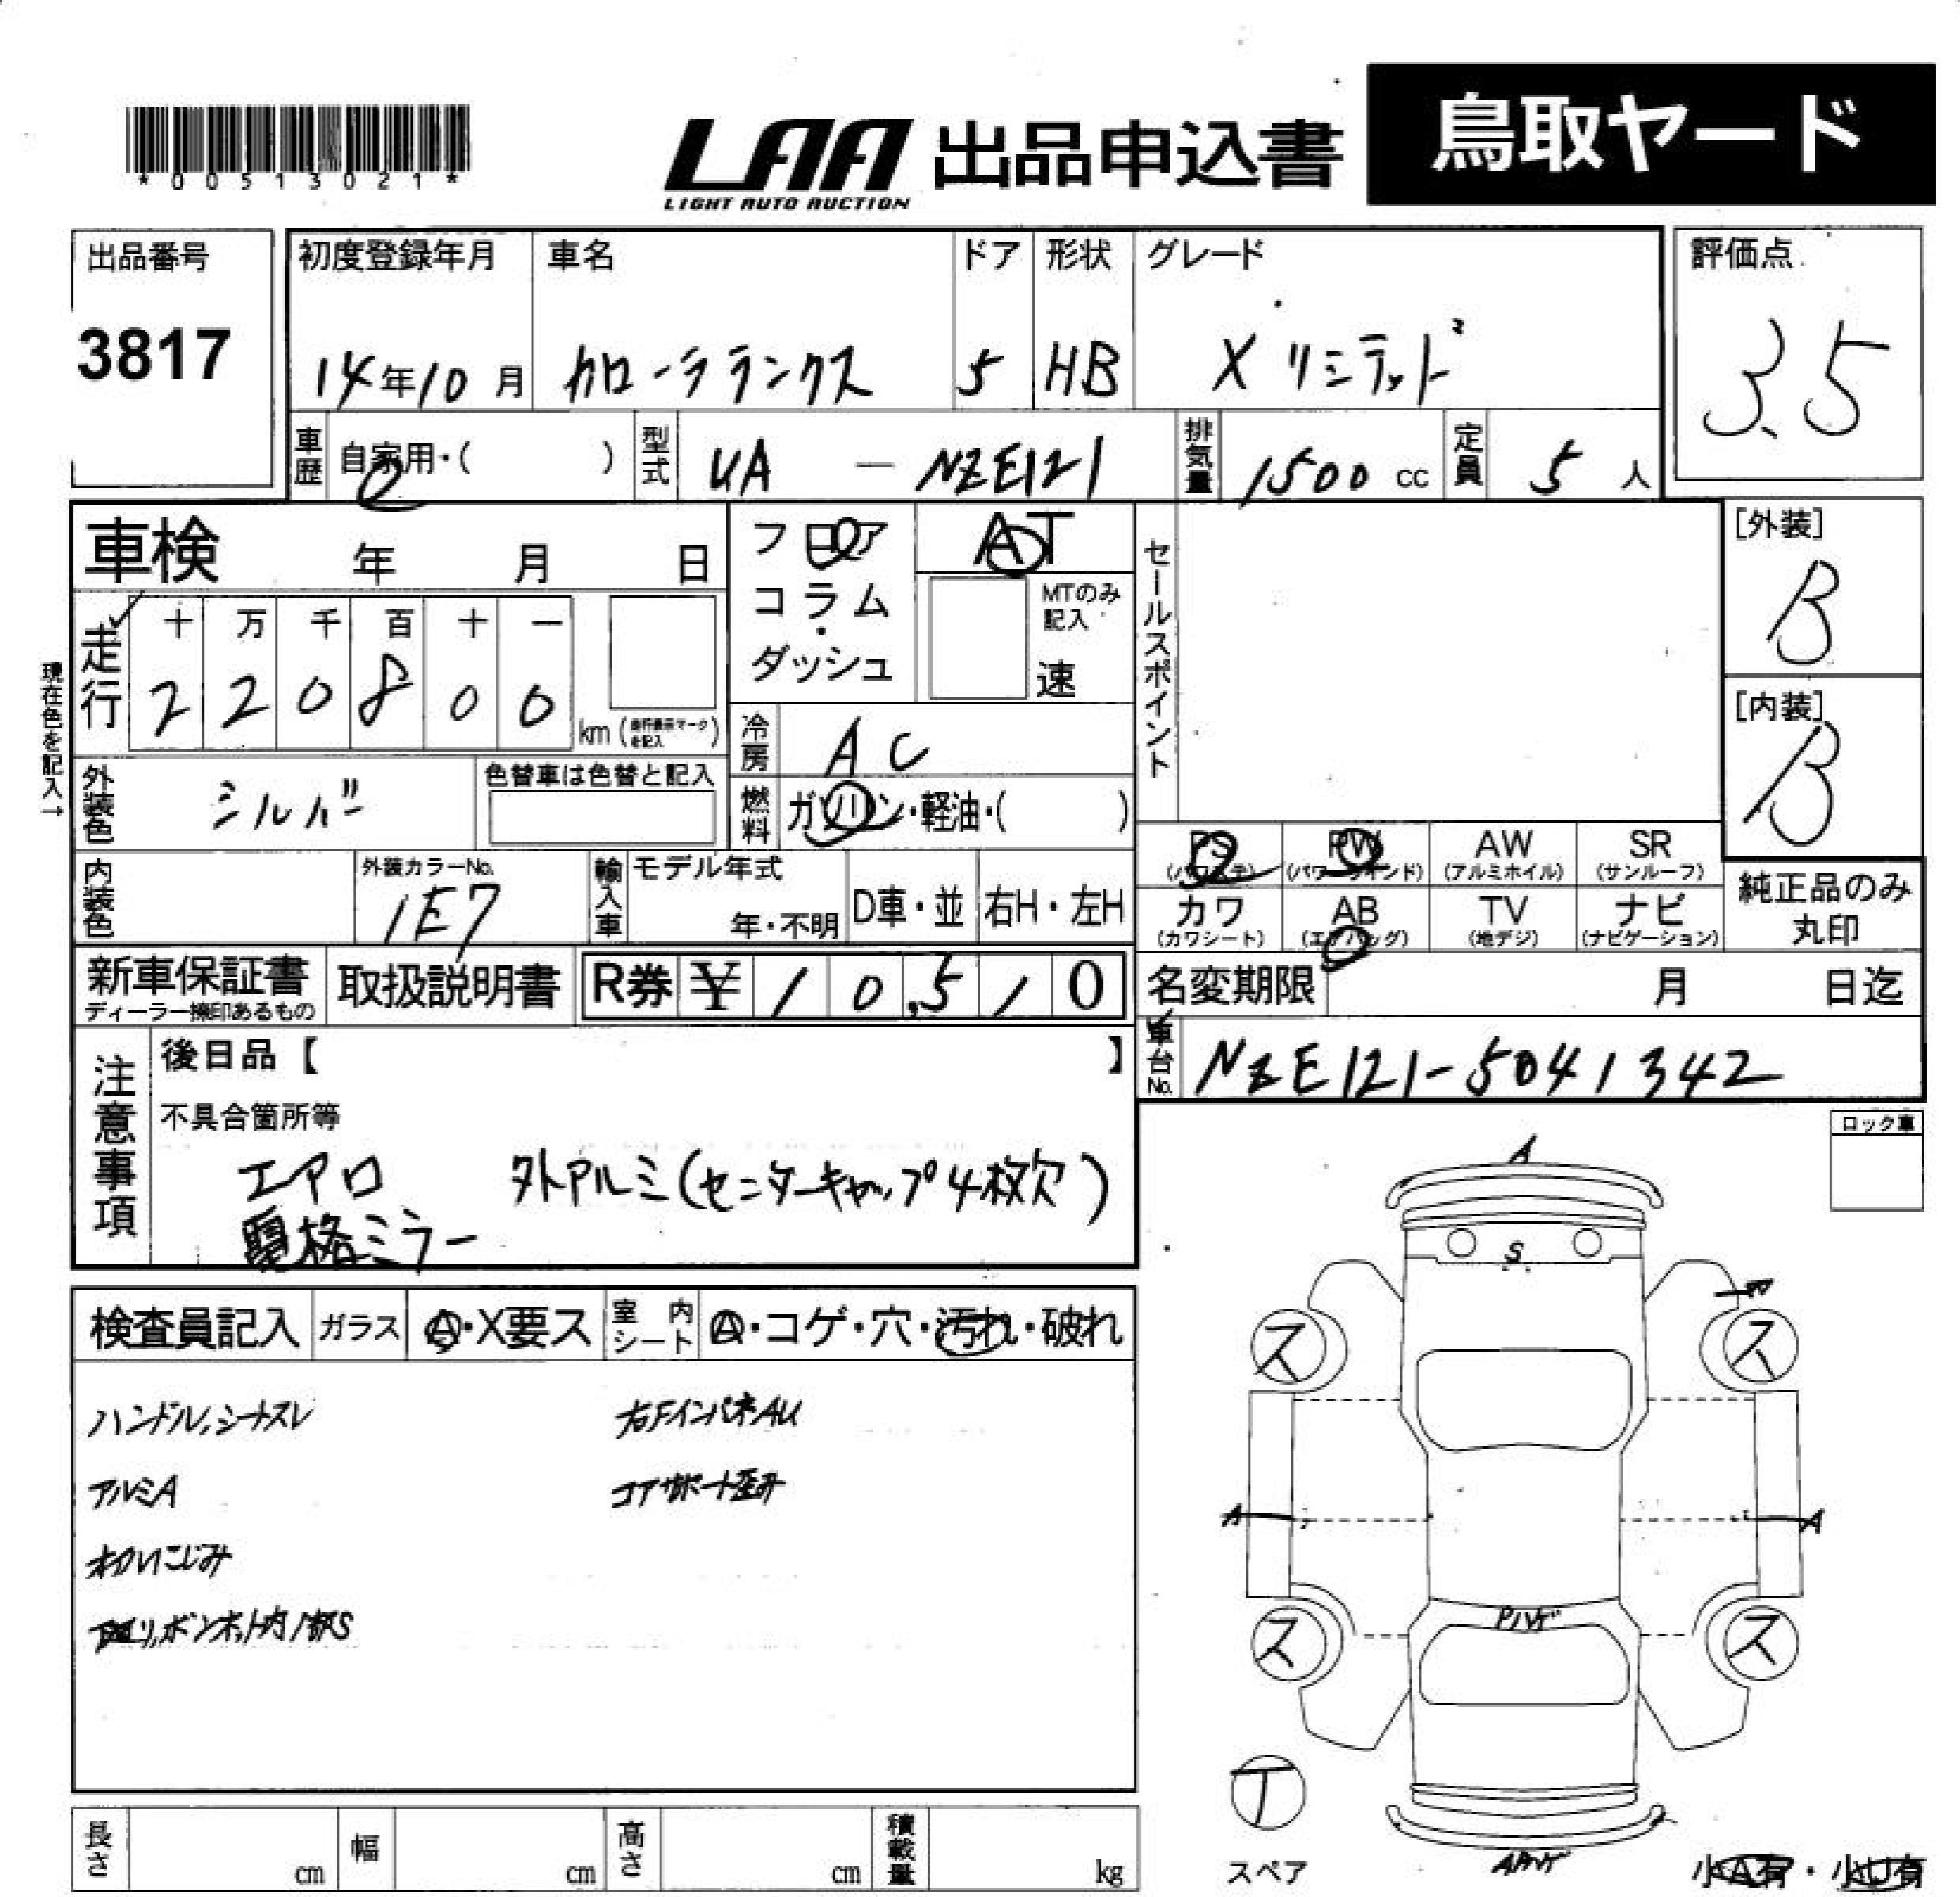 *00513021*
LAA 出品申込書 鳥取ヤード
LIGHT AUTO AUCTION
出品番号
3817
初度登録年月 車名 ドア 形状 グレード
14年10月 カローラランクス 5 HB Xリミテッド
評価点
3.5
車歴 自家用・( ) 型式 UA — NZE121 排気量 1500 cc 定員 5 人
車検 年 月 日
フロア AT
コラム・ MTのみ記入
ダッシュ 速
セールスポイント
[外装]
B
[内装]
B
現在色を記入→
走行 十 万 千 百 十 一
2 2 0 8 0 0 km (走行表示マークを記入)
冷房 AC
外装色 シルバー 色替車は色替と記入
燃料 ガソリン・軽油・( )
PS PW AW SR
(パワステ) (パワーウインド) (アルミホイル) (サンルーフ)
カワ AB TV ナビ
(カワシート) (エアバッグ) (地デジ) (ナビゲーション)
純正品のみ
丸印
内装色 外装カラーNo. 1E7 輸入車 モデル年式 年・不明 D車・並 右H・左H
新車保証書 取扱説明書 R券 ¥ 1 0,5 1 0
ディーラー捺印あるもの
名変期限 月 日迄
車台No. NZE121-5041342
注意事項
後日品【 】
不具合箇所等
エアロ 外アルミ(センターキャップ4枚欠)
電格ミラー
ロック車
検査員記入 ガラス A・X要ス 室内シート A・コゲ・穴・汚れ・破れ
ハンドル,シートスレ 右FインパネAU
アルミA コアサポート歪み
ボンネット内1部S
A
S
ス ス
A A
Pハゲ
ス ス
T
スペア
小A有・小U有
長さ cm 幅 cm 高さ cm 積載量 kg